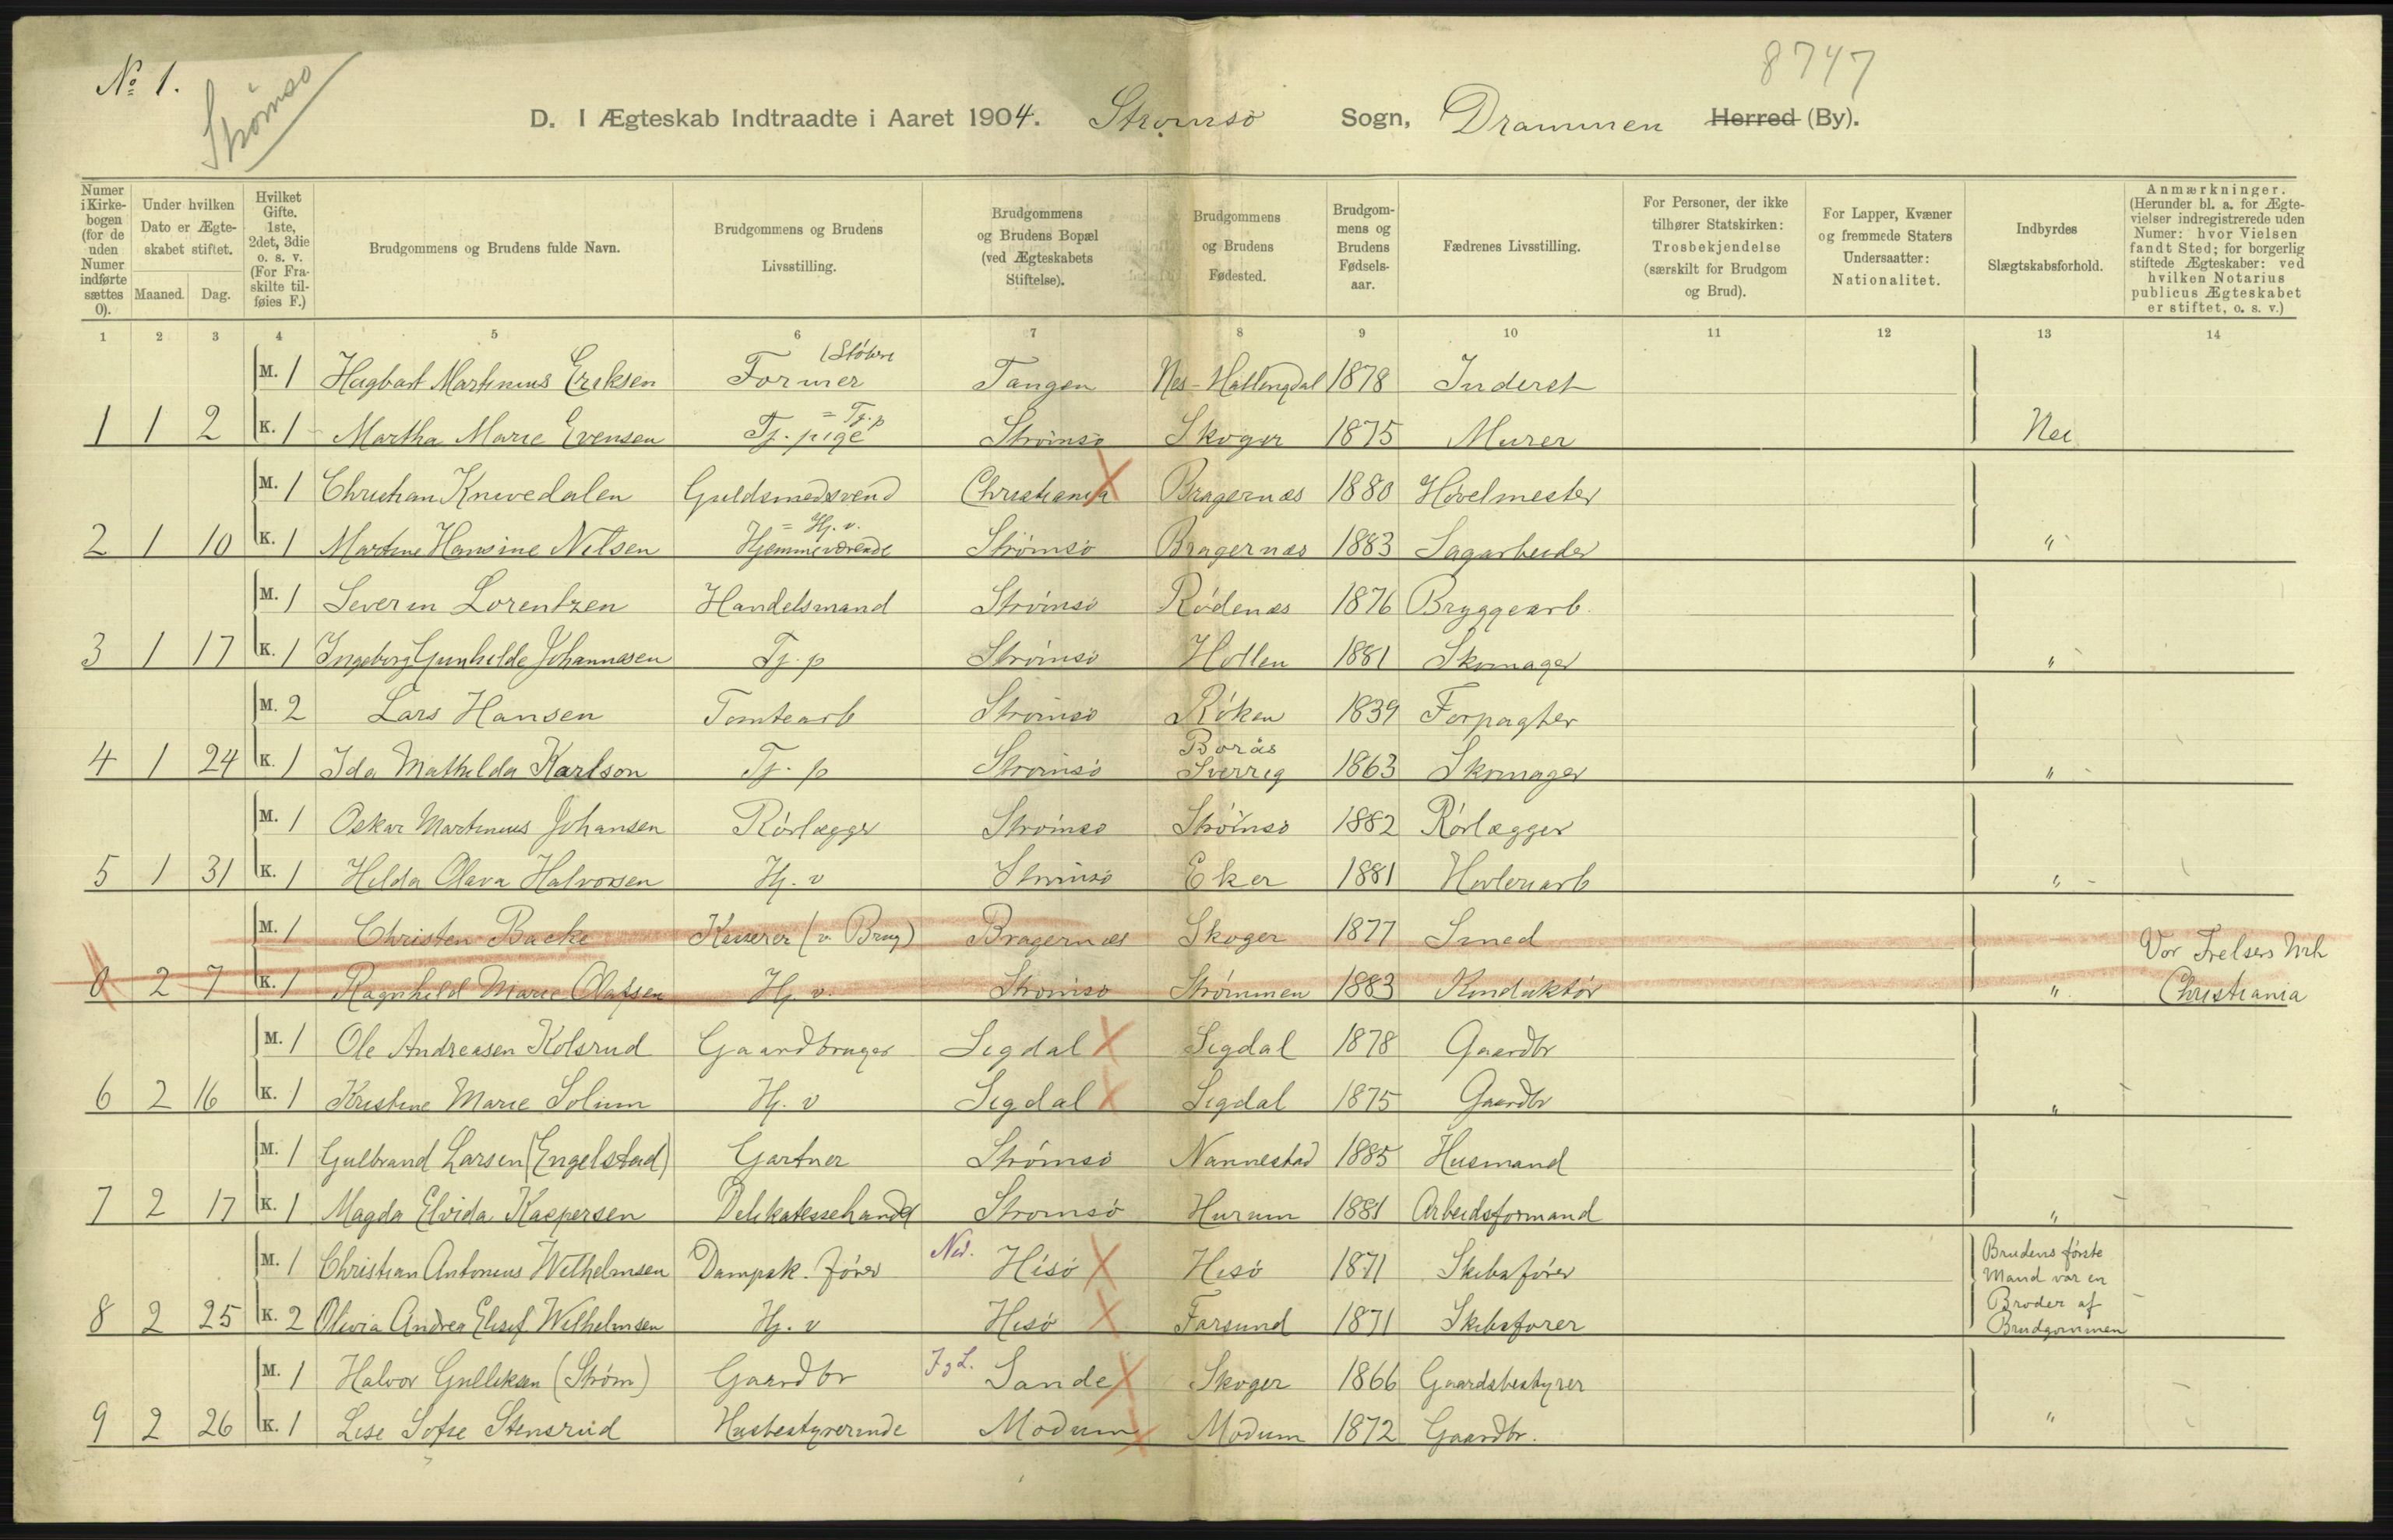 8747
№ 1.
Strömsö
D. I Ægteskab Indtraadte i Aaret 1904. Strömsö Sogn, Drammen Herred (By).
Numer i Kirkebogen (for de uden Numer indførte sættes 0).
Under hvilken Dato er Ægteskabet stiftet.
Maaned. Dag.
Hvilket Gifte. 1ste, 2det, 3die o. s. v. (For Fraskilte tilføies F.)
Brudgommens og Brudens fulde Navn.
Brudgommens og Brudens Livsstilling.
Brudgommens og Brudens Bopæl (ved Ægteskabets Stiftelse).
Brudgommens og Brudens Fødested.
Brudgommens og Brudens Fødselsaar.
Fædrenes Livsstilling.
For Personer, der ikke tilhører Statskirken: Trosbekjendelse (særskilt for Brudgom og Brud).
For Lapper, Kvæner og fremmede Staters Undersaatter: Nationalitet.
Indbyrdes Slægtskabsforhold.
Anmærkninger. (Herunder bl. a. for Ægtevielser indregistrerede uden Numer: hvor Vielsen fandt Sted; for borgerlig stiftede Ægteskaber: ved hvilken Notarius publicus Ægteskabet er stiftet, o. s. v.)
1 2 3 4 5 6 7 8 9 10 11 12 13 14
M. 1 Hagbart Martinius Eriksen Former (Støberi Tangen Nes-Hallingdal 1878 Inderst
1 1 2 K. 1 Martha Marie Evensen Tj. pige = Tj. p Strömsö Skoger 1875 Murer Nei
M. 1 Christian Knivedalen Guldsmedsvend Christiania Bragernæs 1880 Hövelmester
2 1 10 K. 1 Martine Hansine Nilsen Hjemmeværende = Hj. v. Strömsö Bragernæs 1883 Sagarbeider "
M. 1 Severin Lorentzen Handelsmand Strömsö Rödenæs 1876 Bryggearb.
3 1 17 K. 1 Ingeborg Gunhilde Johannesen Tj. p Strömsö Hollen 1881 Skomager "
M. 2 Lars Hansen Tomtearb Strömsö Röken 1839 Forpagter
4 1 24 K. 1 Ida Mathilda Karlson Tj. p Strömsö Borås Sverrig 1863 Skomager "
M. 1 Oskar Martinius Johansen Rörlægger Strömsö Strömsö 1882 Rörlægger
5 1 31 K. 1 Hilda Olava Halvorsen Hj. v Strömsö Eker 1881 Hövleriarb "
M. 1 Christen Backe Kasserer (v. Brug) Bragernæs Skoger 1877 Smed Vor Frelsers
0 2 7 K. 1 Ragnhild Marie Olafsen Hj. v. Strömsö Strömmen 1883 Konduktör " Christiania
M. 1 Ole Andreasen Kolsrud Gaardbruger Sigdal Sigdal 1878 Gaardbr
6 2 16 K. 1 Kristine Marie Solum Hj. v Sigdal Sigdal 1875 Gaardbr "
M. 1 Gulbrand Larsen (Engelstad) Gartner Strömsö Nannestad 1885 Husmand
7 2 17 K. 1 Magda Elvida Kaspersen Delikatessehandel Strömsö Hurum 1881 Arbeidsformand "
M. 1 Christian Antonius Wilhelmsen Dampsk. förer Ned. Hisö Hisö 1871 Skibsförer Brudens förste Mand var en
8 2 25 K. 2 Olivia Andrea Elisef Wilhelmsen Hj. v Hisö Farsund 1871 Skibsförer Broder af Brudgommen
M. 1 Halvor Gulliksen (Ström) Gaardbr Sande Skoger 1866 Gaardsbestyrer
9 2 26 K. 1 Lise Sofie Stensrud Husbestyrerinde Modum Modum 1872 Gaardbr. "